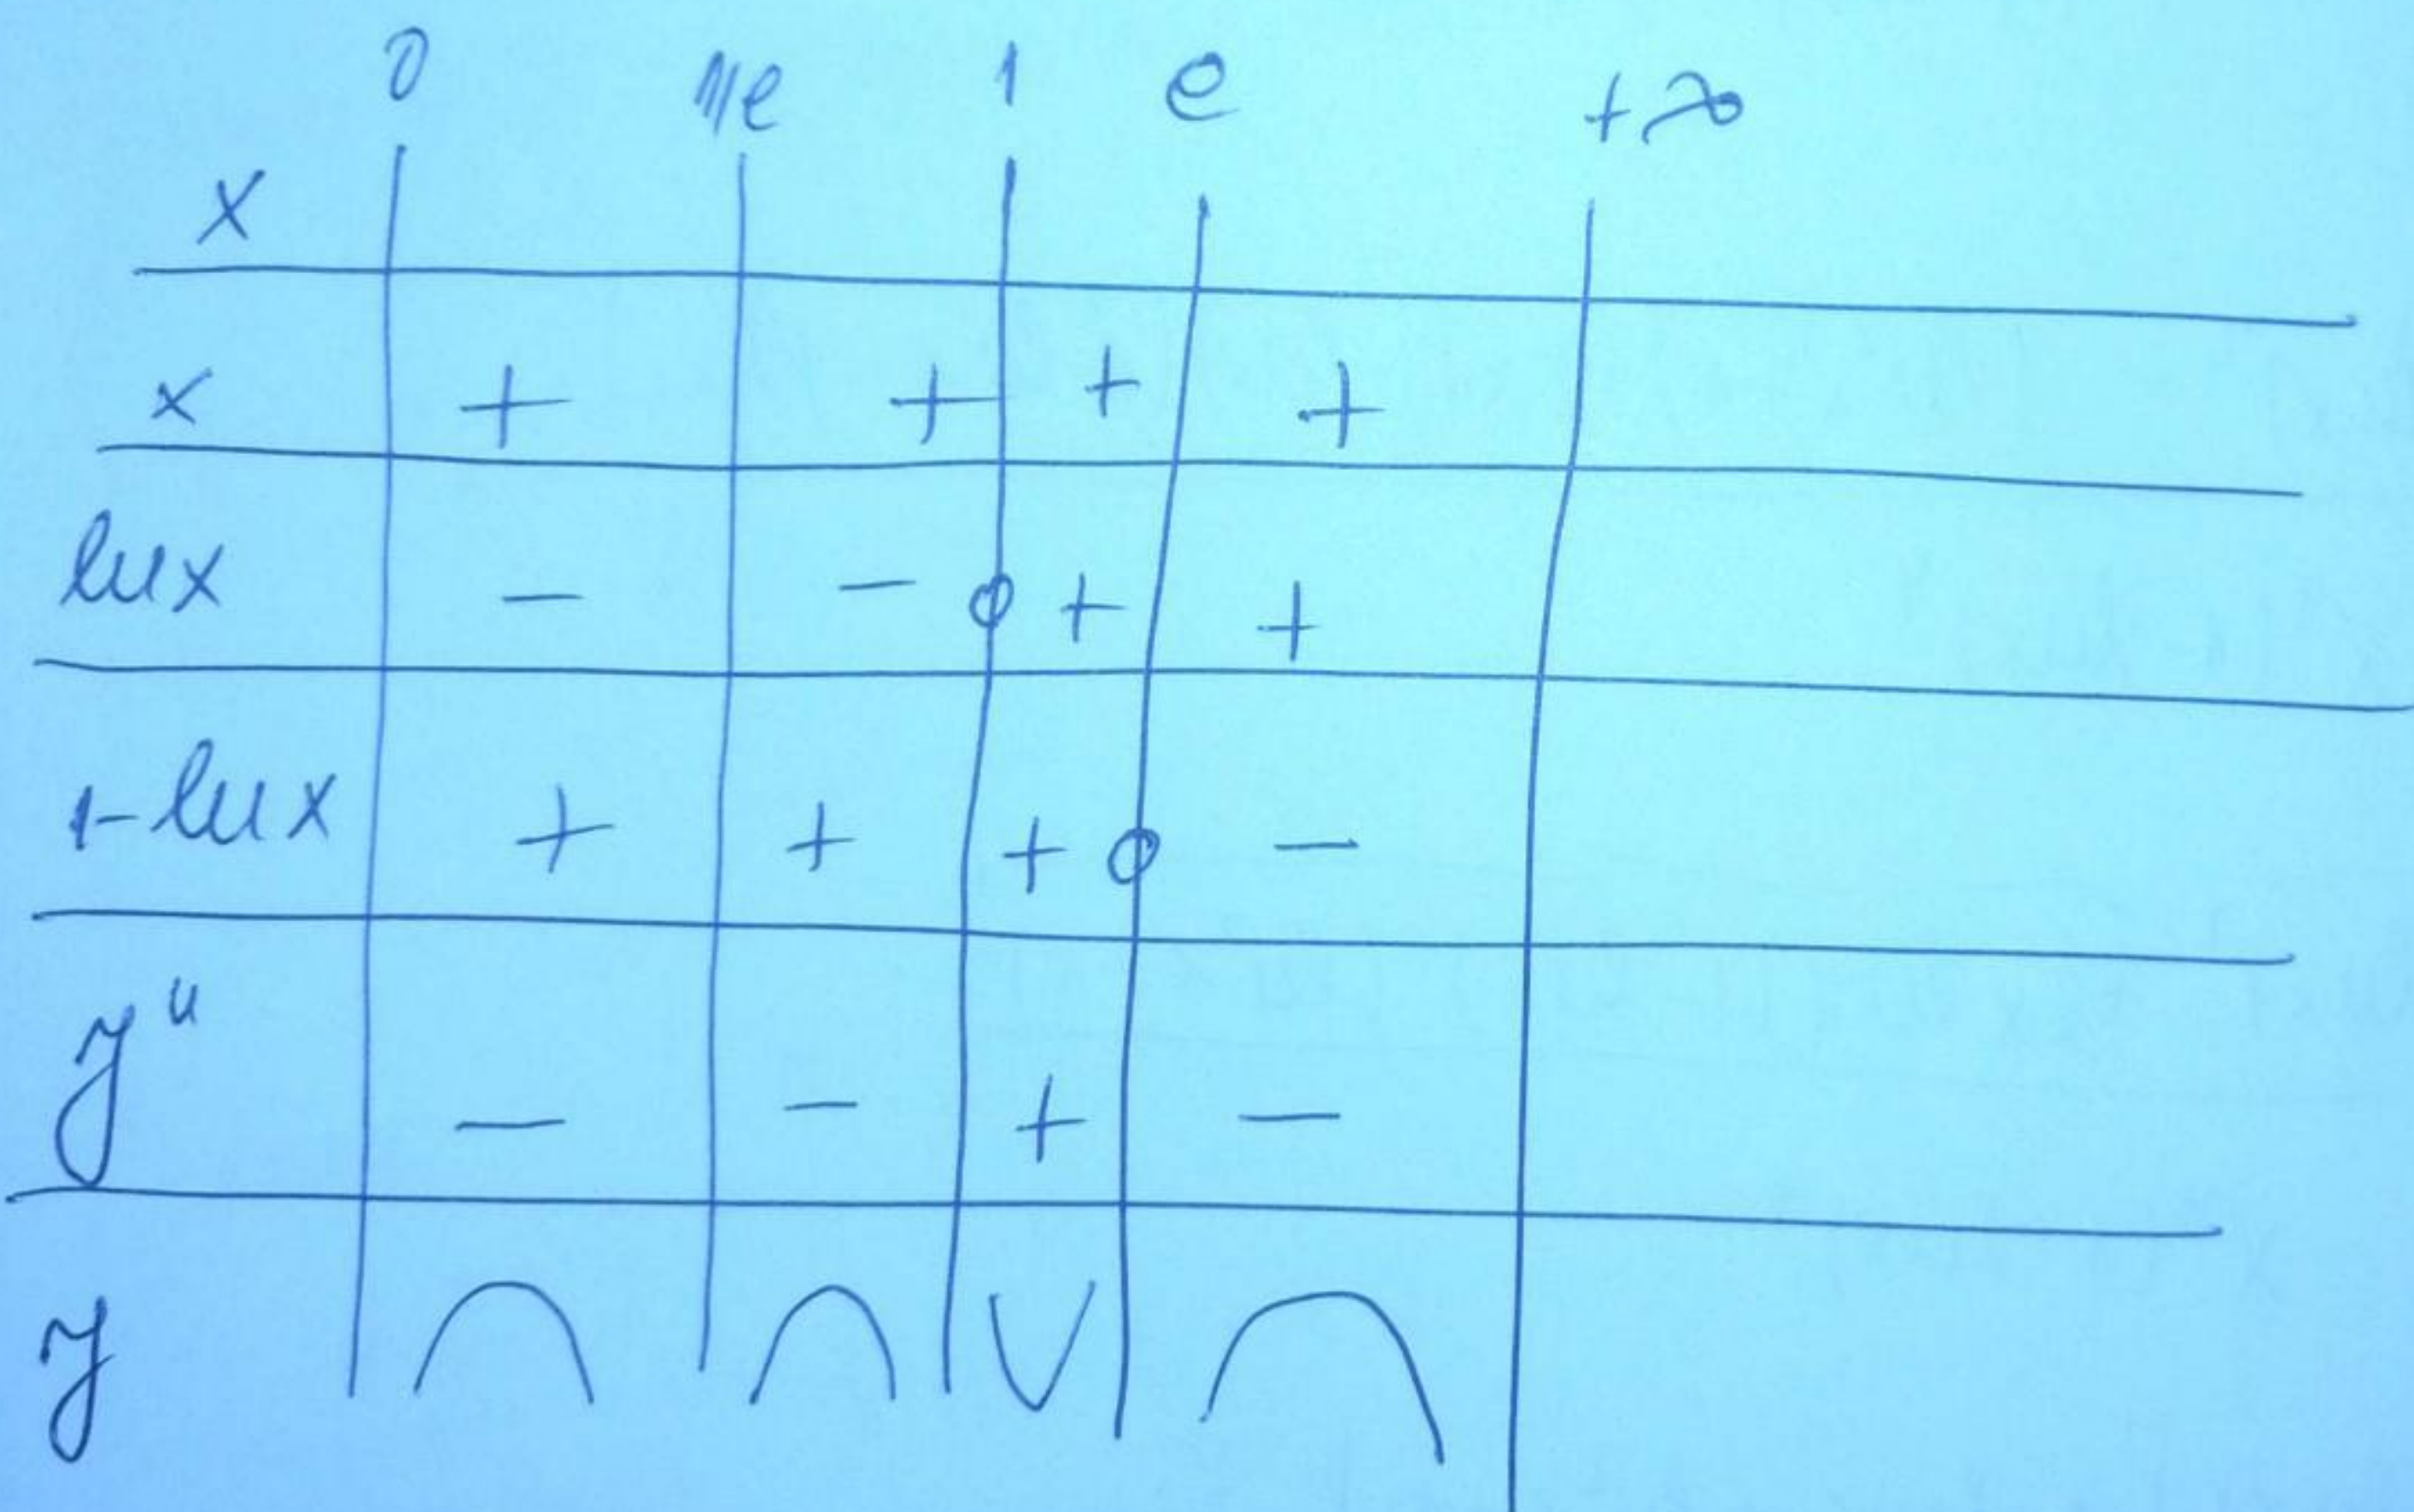 0 1/e 1 e +∞
x
x + + + +
lnx - - 0 + +
1-lnx + + + 0 -
y" - - + -
y ∩ ∩ ∪ ∩